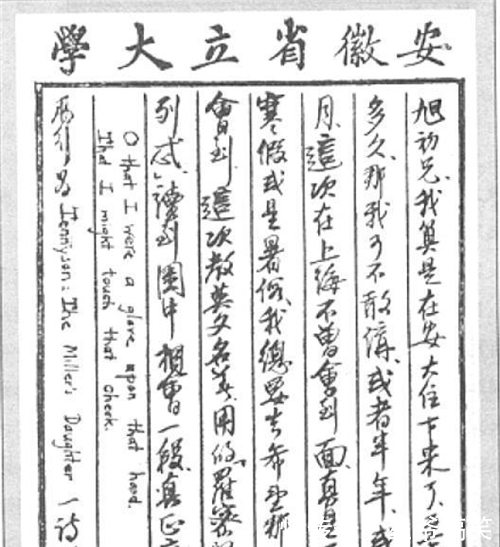 安徽省立大學
旭初兄、我算是在安大住下来了、
多久、那我可不敢講、或者半年、或
月、這次在上海不曾會到面、真
寒假或是暑假、我總要去希望那
會到、這次教英文名著、用的羅密
列忒、讀到園中相會一段、真正
O that I were a glove upon that hand,
That I might touch that cheek.
Tennyson: The Miller's Daughter 一詩